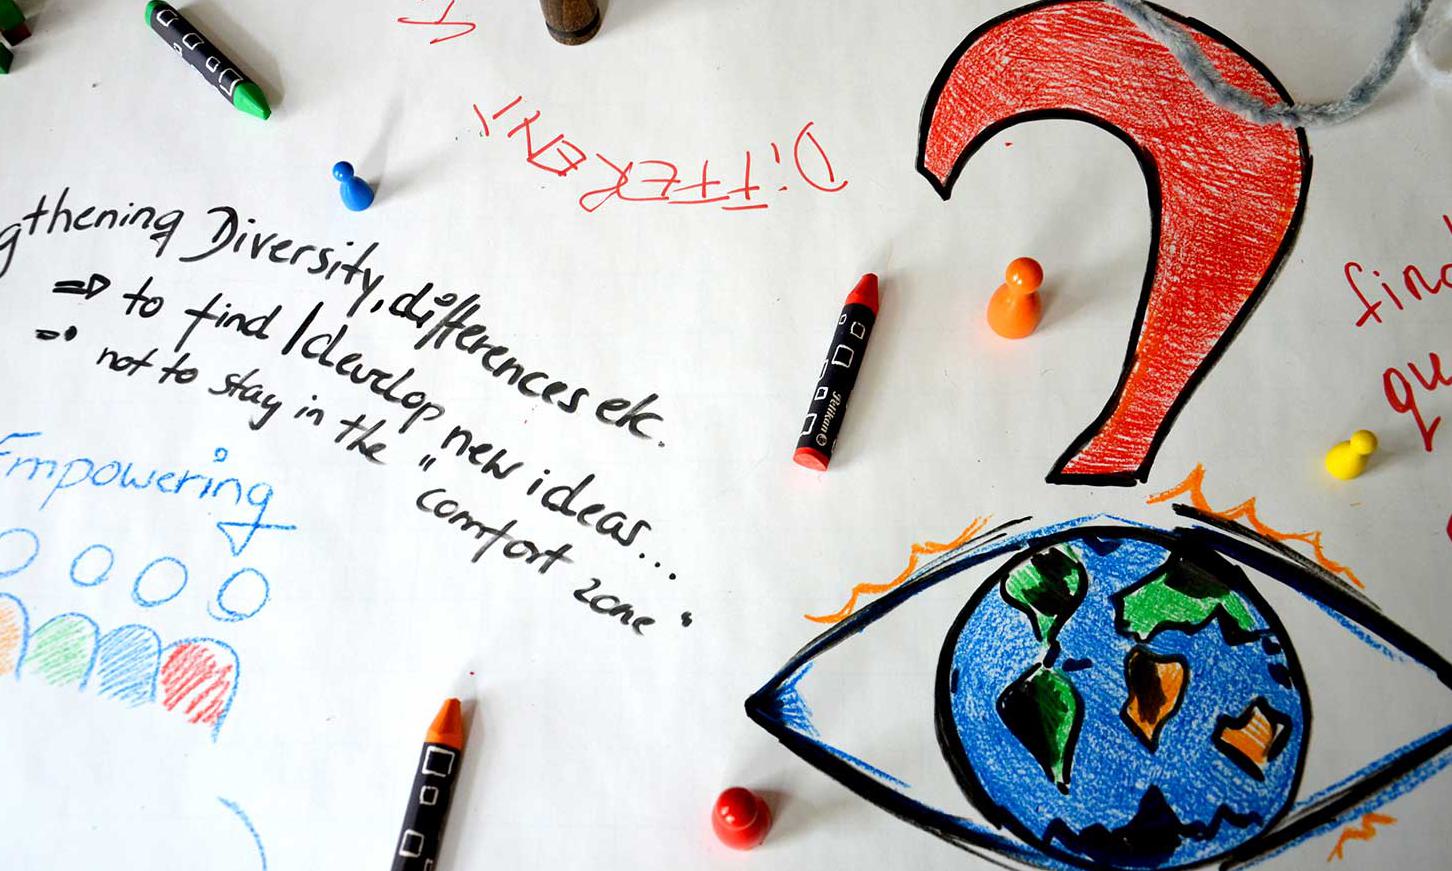 DiFFERENT
gthening Diversity, differences etc.
=> to find / develop new ideas...
=> not to stay in the "comfort zone"
Empowering
find
qu
Pelikan